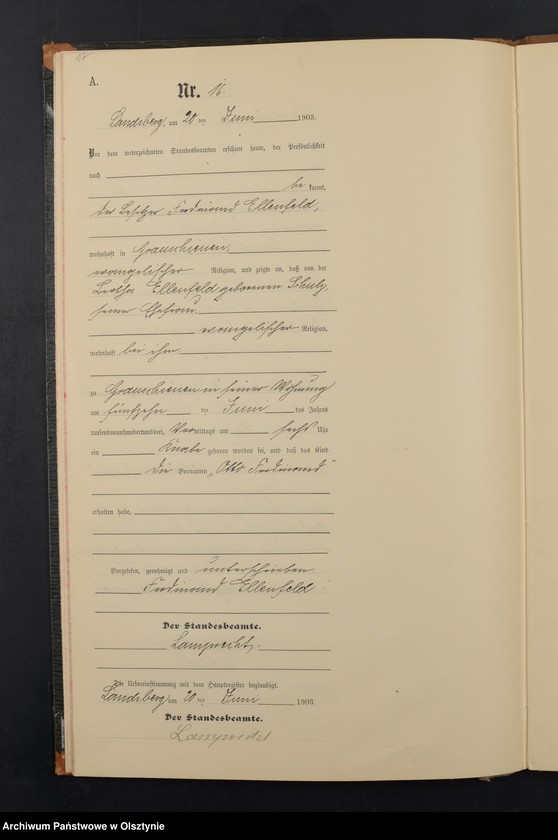 A.
Nr. 16.
Landsberg, am 20ten Juni 1903.
Vor dem unterzeichneten Standesbeamten erschien heute, der Persönlichkeit
nach
be kannt,
der Besitzer Ferdinand Ellenfeld,
wohnhaft in Grauschienen,
evangelischer Religion, und zeigte an, daß von der
Bertha Ellenfeld geborenen Schulz,
seiner Ehefrau,
evangelischer Religion,
wohnhaft bei ihm
zu Grauschienen in seiner Wohnung
am fünfzehn ten Juni des Jahres
tausendneunhundertunddrei, Vormittags um sechs Uhr
ein Knabe geboren worden sei, und daß das Kind
die Vornamen „Otto Ferdinand“
erhalten habe.
Vorgelesen, genehmigt und unterschrieben
Ferdinand Ellenfeld
Der Standesbeamte.
Lamprecht.
Die Uebereinstimmung mit dem Hauptregister beglaubigt.
Landsberg, am 20ten Juni 1903.
Der Standesbeamte.
Lamprecht
Archiwum Państwowe w Olsztynie